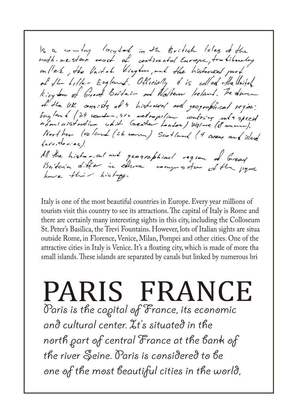 Is a country located in the British Isles of the
north-western coast of continental Europe, constituting
, the United Kingdom, and the historical part
of the England. Officially it is called the United
Kingdom of Great Britain and Northern Ireland. The
of the UK consists of 4 historical and geographical regions:
England (
administrative unit Greater London) Wales (
Northern Ireland (26 Scotland (9 and
All the historical and geographical region of Great
Britain differ in of the
have their history.
Italy is one of the most beautiful countries in Europe. Every year millions of
tourists visit this country to see its attractions. The capital of Italy is Rome and
there are certainly many interesting sights in this city, including the Colloseum
St. Peter's Basilica, the Trevi Fountains. However, lots of Italian sights are situa
outside Rome, in Florence, Venice, Milan, Pompei and other cities. One of the
attractive cities in Italy is Venice. It's a floating city, which is made of more tha
small islands. These islands are separated by canals but linked by numerous bri
PARIS FRANCE
Paris is the capital of France, its economic
and cultural center. It's situated in the
north part of central France at the bank of
the river Seine. Paris is considered to be
one of the most beautiful cities in the world.